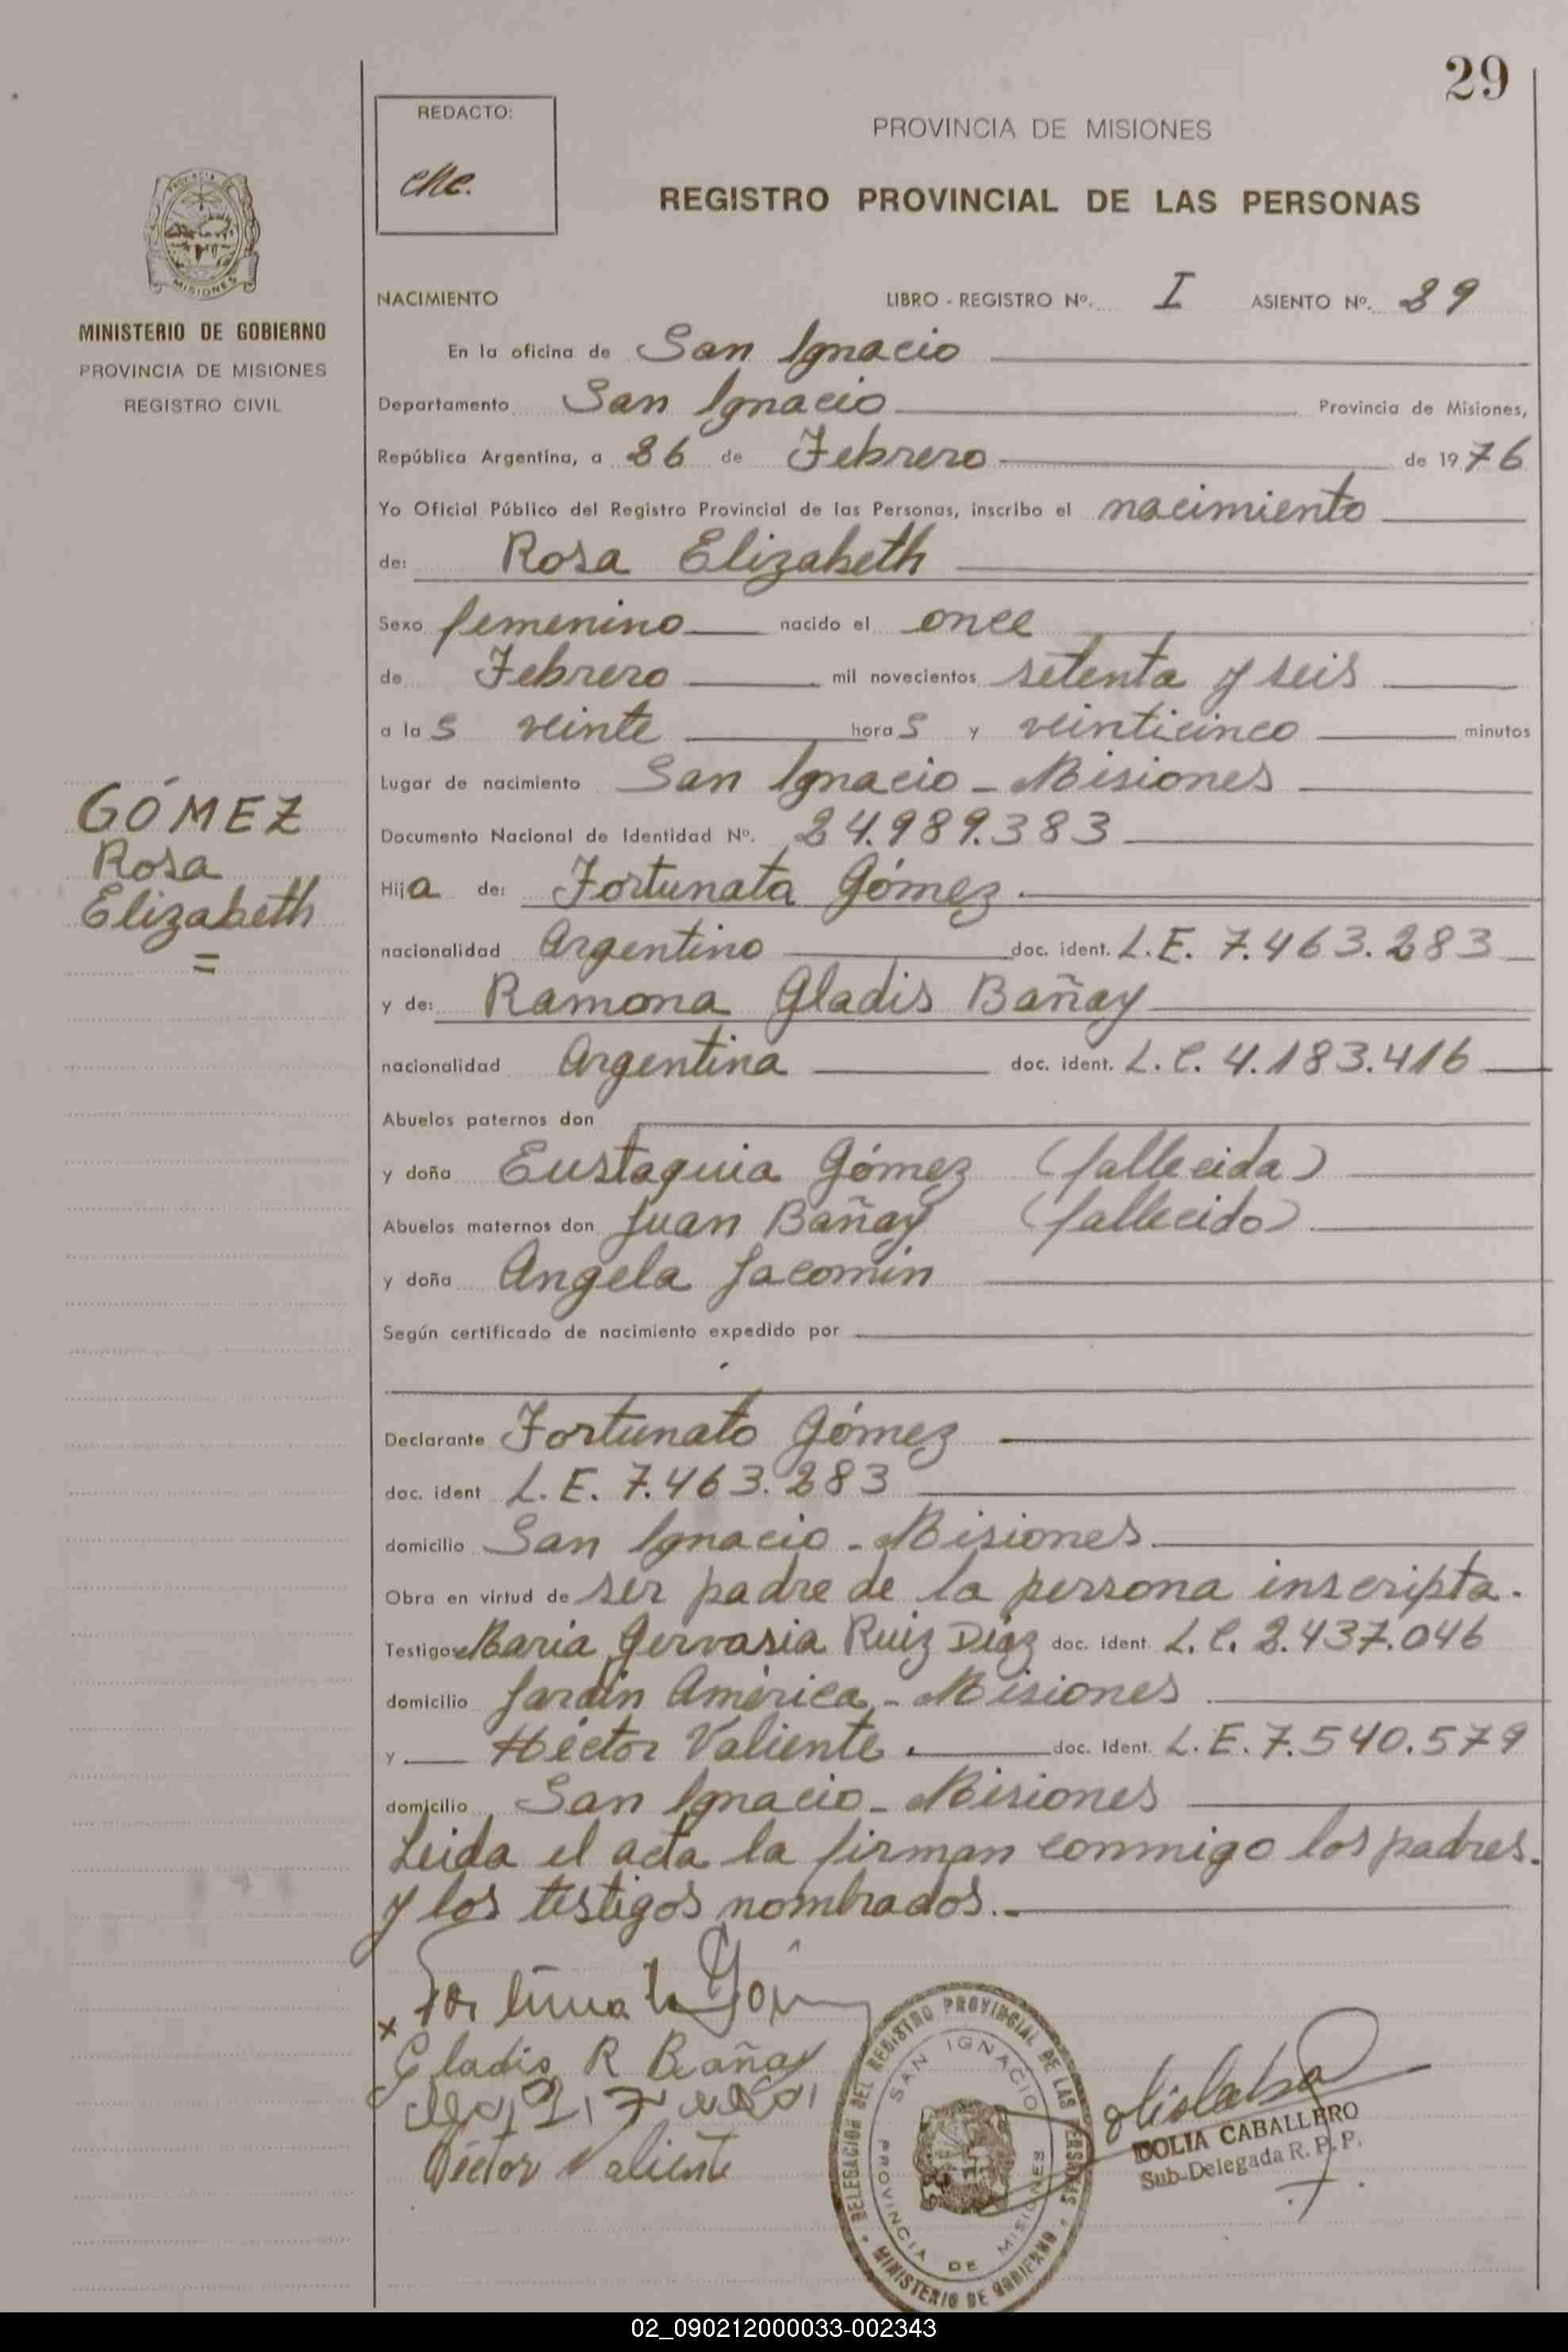 29
REDACTO:
PROVINCIA DE MISIONES
REGISTRO PROVINCIAL DE LAS PERSONAS
MISIONES
MINISTERIO DE GOBIERNO
PROVINCIA DE MISIONES
REGISTRO CIVIL
NACIMIENTO LIBRO - REGISTRO Nº. I ASIENTO Nº. 29
En la oficina de San Ignacio
Departamento San Ignacio Provincia de Misiones,
República Argentina, a 26 de Febrero de 1976
Yo Oficial Público del Registro Provincial de las Personas, inscribo el nacimiento
de: Rosa Elizabeth
Sexo femenino nacido el once
de Febrero mil novecientos setenta y seis
a las veinte horas y veinticinco minutos
Lugar de nacimiento San Ignacio - Misiones
GÓMEZ
Rosa
Elizabeth
=
Documento Nacional de Identidad Nº. 24.989.383
Hija de: Fortunata Gómez.
nacionalidad Argentino doc. ident. L.E. 7.463.283
y de: Ramona Gladis Bañay
nacionalidad Argentina doc. ident. L.C. 4.183.416
Abuelos paternos don
y doña Eustaquia Gómez (fallecida)
Abuelos maternos don Juan Bañay (fallecido)
y doña Angela Jacomin
Según certificado de nacimiento expedido por
Declarante Fortunato Gómez
doc. ident L.E. 7.463.283
domicilio San Ignacio - Misiones
Obra en virtud de ser padre de la persona inscripta.
Testigos María Gervasia Ruiz Diaz doc. Ident. L.C. 2.437.046
domicilio Jardín América - Misiones
y Héctor Valiente. doc. Ident. L.E. 7.540.579
domicilio San Ignacio - Misiones
Leida el acta la firman conmigo los padres.
y los testigos nombrados.-
x Fortunato Gom
Gladis R Bañay
Héctor Valiente
DELEGACION DEL REGISTRO PROVINCIAL DE LAS PERSONAS
MINISTERIO DE GOBIERNO
SAN IGNACIO
PROVINCIA DE MISIONES
DOLIA CABALLERO
Sub-Delegada R. P. P.
02_090212000033-002343